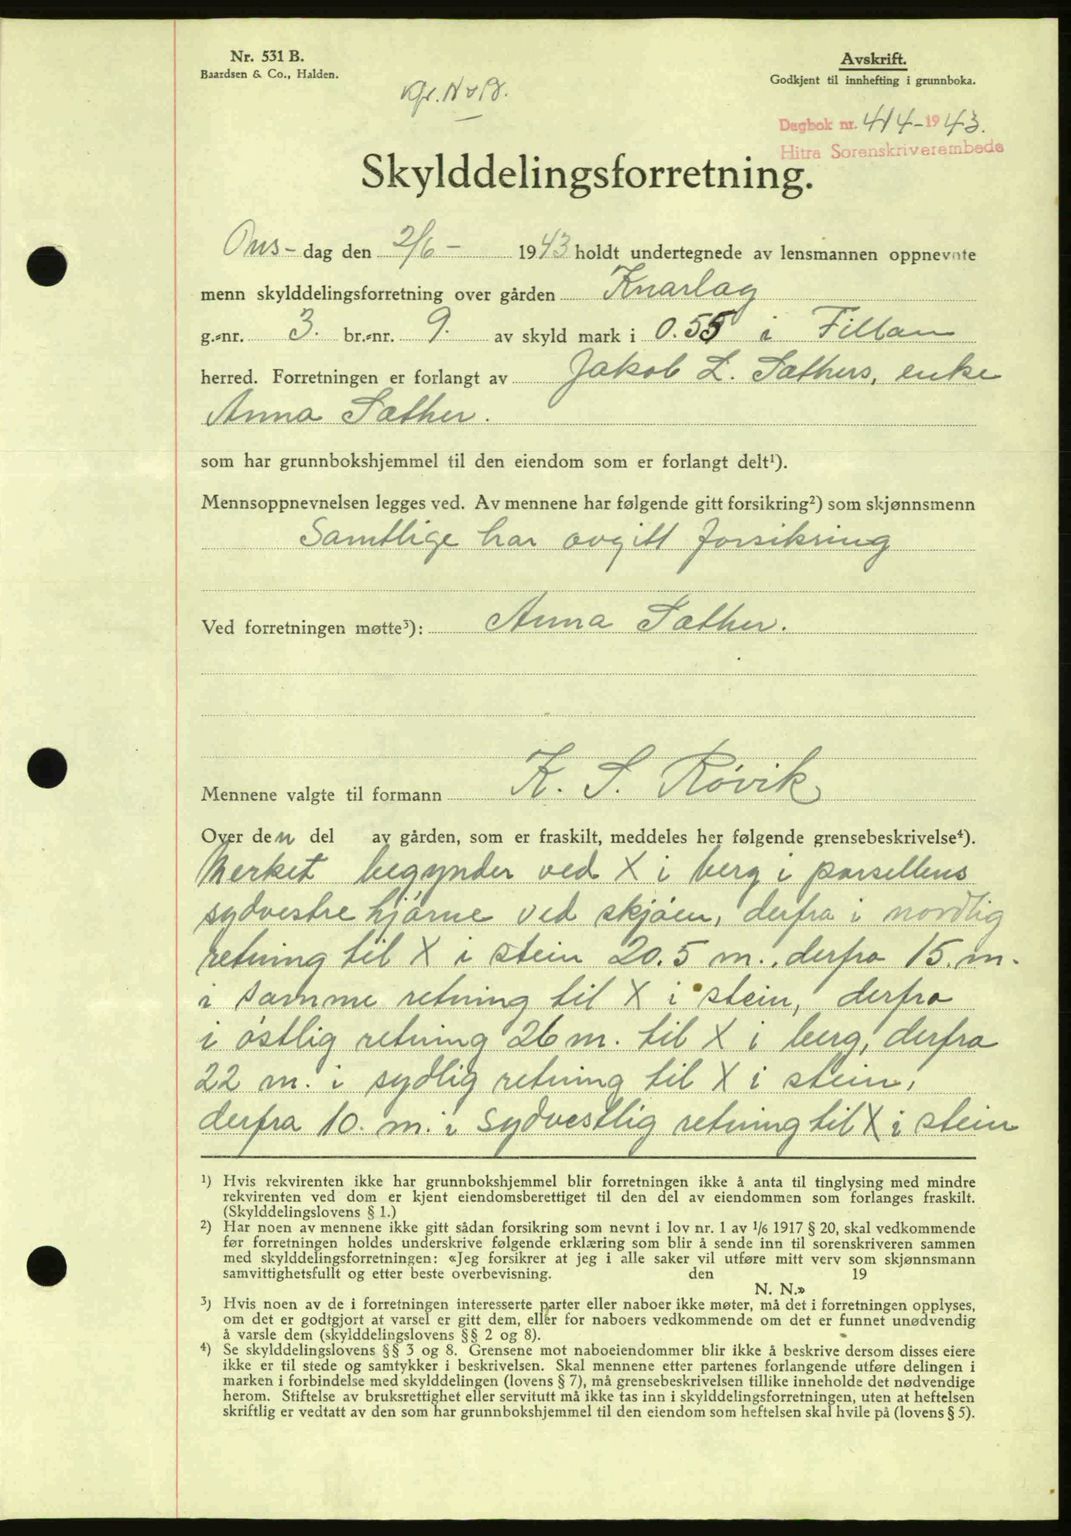 Nr. 531 B.
Baardsen & Co., Halden.
Avskrift.
Godkjent til innhefting i grunnboka.
Dagbok nr. 414-1943.
Hitra Sorenskriverembede
Skylddelingsforretning.
Ons- dag den 2/6 - 1943 holdt undertegnede av lensmannen oppnevnte
menn skylddelingsforretning over gården Knarlag
g.-nr. 3. br.-nr. 9. av skyld mark i 0.55 i Fillan
herred. Forretningen er forlangt av Jakob L. Sæthers, enke
Anna Sæther.
som har grunnbokshjemmel til den eiendom som er forlangt delt¹).
Mennsoppnevnelsen legges ved. Av mennene har følgende gitt forsikring²) som skjønnsmenn
Samtlige har avgitt forsikring
Ved forretningen møtte³): Anna Sæther.
Mennene valgte til formann K. S. Røvik
Over den del av gården, som er fraskilt, meddeles her følgende grensebeskrivelse⁴).
Merket begynder ved X i berg i parsellens
sydvestre hjørne ved skjøen, derfra i nordlig
retning til X i stein 20.5 m., derfra 15. m.
i samme retning til X i stein, derfra
i østlig retning 26 m. til X i berg, derfra
22 m. i sydlig retning til X i stein,
derfra 10. m. i sydvestlig retning til X i stein
¹) Hvis rekvirenten ikke har grunnbokshjemmel blir forretningen ikke å anta til tinglysing med mindre
rekvirenten ved dom er kjent eiendomsberettiget til den del av eiendommen som forlanges fraskilt.
(Skylddelingslovens § 1.)
²) Har noen av mennene ikke gitt sådan forsikring som nevnt i lov nr. 1 av 1/6 1917 § 20, skal vedkommende
før forretningen holdes underskrive følgende erklæring som blir å sende inn til sorenskriveren sammen
med skylddelingsforretningen: «Jeg forsikrer at jeg i alle saker vil utføre mitt verv som skjønnsmann
samvittighetsfullt og etter beste overbevisning. den 19
N. N.»
³) Hvis noen av de i forretningen interesserte parter eller naboer ikke møter, må det i forretningen opplyses,
om det er godtgjort at varsel er gitt dem, eller for naboers vedkommende om det er funnet unødvendig
å varsle dem (skylddelingslovens §§ 2 og 8).
⁴) Se skylddelingslovens §§ 3 og 8. Grensene mot naboeiendommer blir ikke å beskrive dersom disses eiere
ikke er til stede og samtykker i beskrivelsen. Skal mennene etter partenes forlangende utføre delingen i
marken i forbindelse med skylddelingen (lovens § 7), må grensebeskrivelsen tillike inneholde det nødvendige
herom. Stiftelse av bruksrettighet eller servitutt må ikke tas inn i skylddelingsforretningen, uten at heftelsen
skriftlig er vedtatt av den som har grunnbokshjemmel til den eiendom som heftelsen skal hvile på (lovens § 5).